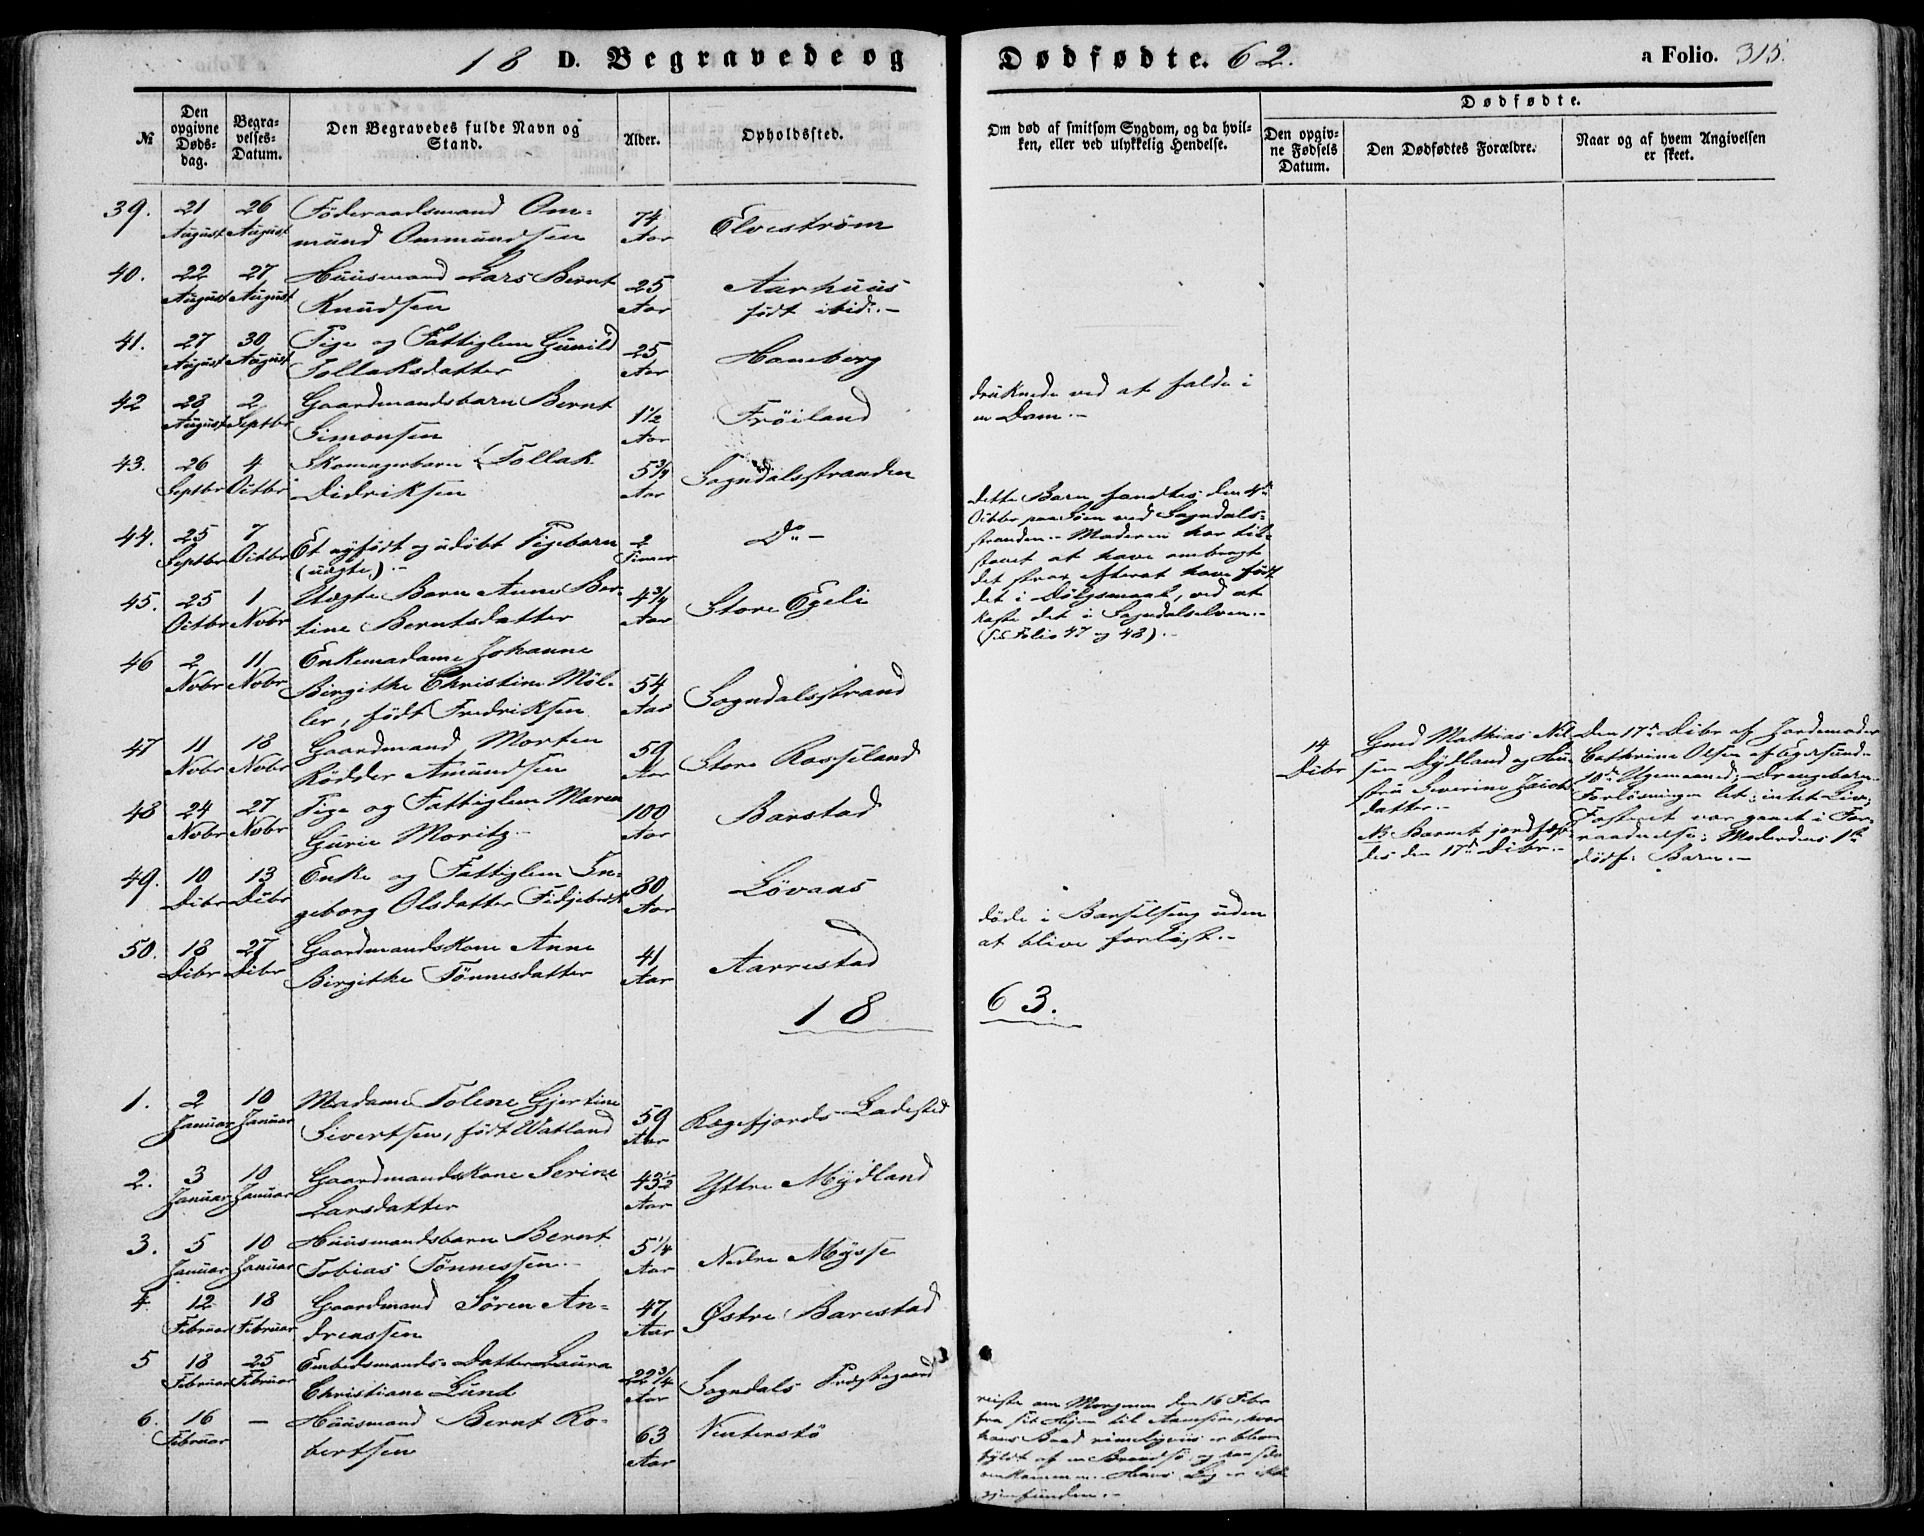 18 D. Begravede og Dødfødte. 62. a Folio. 315.
№ Den opgivne Døds-dag. Begra-velses-Datum. Den Begravedes fulde Navn og Stand. Alder. Opholdssted. Om død af smitsom Sygdom, og da hvil-ken, eller ved ulykkelig Hendelse. Dødfødte. Den opgiv-ne Fødsels Datum. Den Dødfødtes Forældre. Naar og af hvem Angivelsen er skeet.
39. 21 August 26 August Föderaadsmand Om=
mund Ommundsen 74 Aar Elvestrøm
40. 22 August 27 August Huusmand Lars Bernt
Knudsen 25 Aar Aarhuus
født ibid:-
41. 27 August 30 August Pige og Fattiglem Gunild
Tollaksdatter 25 Aar Haneberg
42 28 August 2 Septbr Gaardmandsbarn Bernt
Simonsen 1½ Aar Fröiland
druknede ved at falde i
en Dam.-
43. 26 Septbr 4 Octbr Skomagerbarn Tollak
Didriksen 5¾ Aar Sogndalsstranden
44. 25 Septbr 7 Octbr Et nyfødt og udøbt Pigebarn
(uægte).- 2 Timer Do -
dette Barn fandtes den 4de
Octbr paa Søen ved Sogndals=
stranden.- Moderen har til=
staaet at have ombragt
det strax efterat have født
det i Dølgsmaal, ved at
kaste det i Sogndalselven.-
(see Folio 47 og 48).-
45. 25 Octbr 1 Novbr Uægte Barn Anne Ber=
tine Berntsdatter 4¾ Aar Store Egeli
46 2 Novbr 11 Novbr Enkemadame Johanne
Birgithe Christine Möl=
ler, født Fredriksen 54 Aar Sogndalsstrand
47 11 Novbr 18 Novbr Gaardmand Morten
Rödder Amundsen 59 Aar Store Rosseland
14 Dcbr Gmd Mathias Nil=
sen Dydland og Hu=
stru Severine Jacobs
datter.-
NB Barnet jordfæste=
des den 17de Dcbr.-
Den 17de Dcbr af Jordemoder
Cathrine Olsen af Egersund
10de Ugemaaned; Drengebarn
Forløsningen let; intet Liv;
Fosteret var gaaet i For=
raadnelse; Moderens 1ste
dödf: Barn.-
48 24 Novbr 27 Novbr Pige og Fattiglem Maren
Gurie Moritz.- 100 Aar Barstad
49. 10 Dcbr 13 Dcbr Enke og Fattiglem In=
geborg Olsdatter Fidjebrek 80 Aar Lövaas
50. 18 Dcbr 27 Dcbr Gaardmandskone Anne
Birgithe Tönnesdatter 41 Aar Aarrestad
døde i Barselseng uden
at blive forløst.-
18 63.
1. 2 Januar 10 Januar Madame Tolene Gjertine
Sivertsen, født Watland 59 Aar Rægefjords-Ladested
2. 3 Januar 10 Januar Gaardmandskone Serine
Larsdatter 43½ Aar Yttre Mydland
3. 5 Januar 10 Januar Huusmandsbarn Bernt
Tobias Tönnessen.- 5¼ Aar Nedre Mysse
4. 12 Februar 18 Februar Gaardmand Sören An=
dreassen 47 Aar Østre Barestad
5 18 Februar 25 Februar Embedsmands-Datter Laura
Christiane Lund 22¾ Aar Sogndals Præstegaard
6. 16 Februar - Huusmand Bernt Ro=
bertsen 63 Aar Vinterstö
reiste om Morgenen den 16 Febr
fra sit Hjem til hvor
hans Baad rimeligviis er bleven
fyldt af en Brændsö og paa
omkommen. Hans Lig er ikke
gjenfunden.-